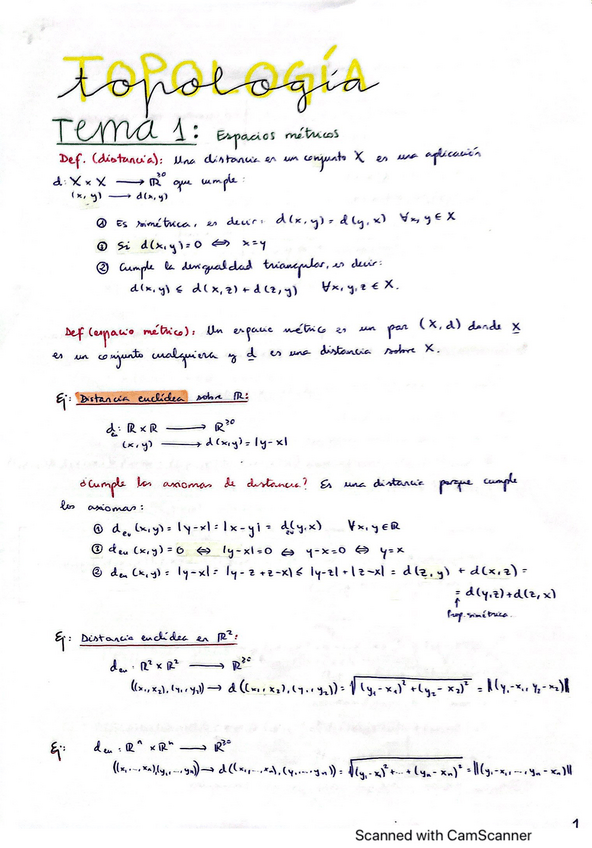 TOPOLOGÍA
topología
Tema 1: Espacios métricos
Def. (distancia): Una distancia en un conjunto X es una aplicación
d: X × X → ℝ≥0 que cumple:
(x, y) → d(x, y)
① Es simétrica, es decir: d(x, y) = d(y, x) ∀x, y ∈ X
① Si d(x, y) = 0 ⇔ x = y
② Cumple la desigualdad triangular, es decir:
d(x, y) ≤ d(x, z) + d(z, y) ∀x, y, z ∈ X.
Def (espacio métrico): Un espacio métrico es un par (X, d) donde X
es un conjunto cualquiera y d es una distancia sobre X.
Ej: Distancia euclídea sobre ℝ:
d: ℝ × ℝ → ℝ≥0
(x, y) → d(x, y) = |y-x|
¿Cumple los axiomas de distancia? Es una distancia porque cumple
los axiomas:
① deu (x, y) = |y-x| = |x-y| = deu(y, x) ∀x, y ∈ ℝ
② deu (x, y) = 0 ⇔ |y-x| = 0 ⇔ y-x = 0 ⇔ y = x
③ deu (x, y) = |y-x| = |y-z+z-x| ≤ |y-z| + |z-x| = d(z, y) + d(x, z) =
= d(y, z) + d(z, x)
↑
Prop. simétrica.
Ej: Distancia euclídea en ℝ²:
deu : ℝ² × ℝ² → ℝ≥0
((x₁, x₂), (y₁, y₂)) → d((x₁, x₂), (y₁, y₂)) = √((y₁-x₁)² + (y₂-x₂)²) = ‖(y₁-x₁, y₂-x₂)‖
Ej: deu : ℝⁿ × ℝⁿ → ℝ≥0
((x₁, ..., xₙ), (y₁, ..., yₙ)) → d((x₁, ..., xₙ), (y₁, ..., yₙ)) = √((y₁-x₁)² + ... + (yₙ-xₙ)²) = ‖(y₁-x₁, ..., yₙ-xₙ)‖
1
Scanned with CamScanner